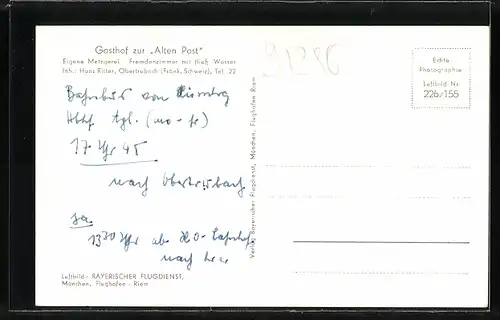 Gasthof zur „Alten Post"
Eigene Metzgerei Fremdenzimmer mit fließ. Wasser
Inh.: Hans Ritter, Obertrubach (Fränk. Schweiz), Tel. 22
91286
Bahnbus von Nürnberg
Hbhf tgl. (mo - fr)
17 Uhr 45
nach Obertrubach
sa.
1330 Uhr ab
nach
Luftbild - BAYERISCHER FLUGDIENST,
München, Flughafen - Riem
Verlag Bayerischer Flugdienst, München, Flughafen Riem
Echte
Photographie
Luftbild Nr.
226/155